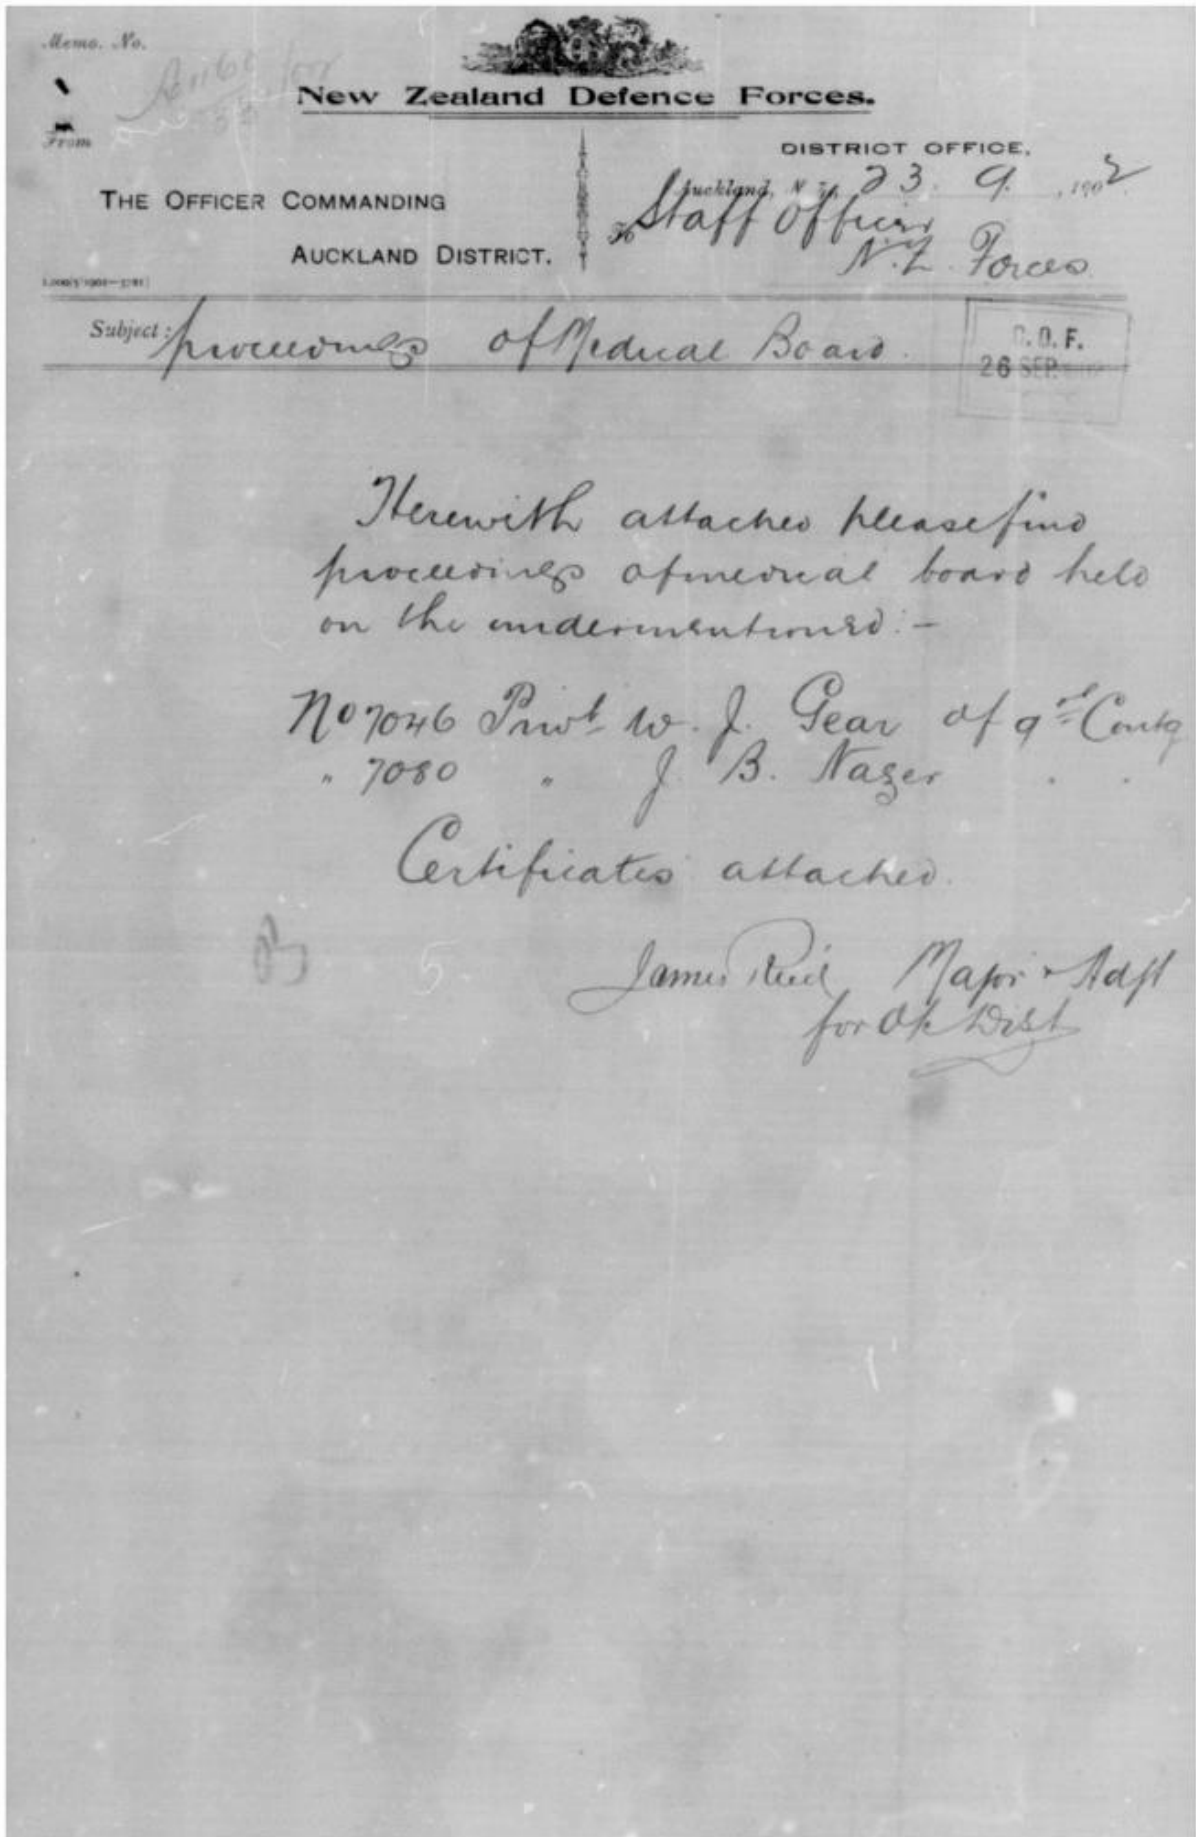 Memo. No.
New Zealand Defence Forces.
From
DISTRICT OFFICE,
Auckland, N.Z., 23. 9. 1902.
THE OFFICER COMMANDING
AUCKLAND DISTRICT.
To Staff Officer
N.Z. Forces
Subject: proceedings of Medical Board.
26 SEP
Herewith attached please find
proceedings of medical board held
on the undermentioned:-
No 7046 Privt W. J. Gear of 9th Contg
" 7080 " J. B. Nazer " "
Certificates attached.
James Reid Major & Adjt
for OC Dist